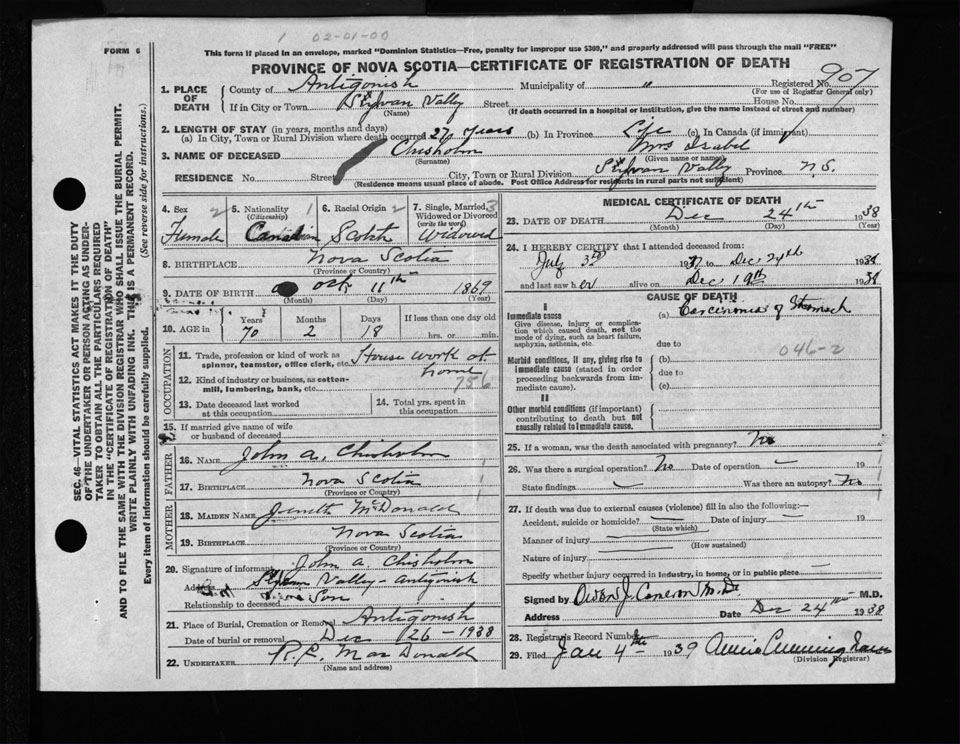 1 02-01-00
FORM 6
This form if placed in an envelope, marked "Dominion Statistics—Free, penalty for improper use $300," and properly addressed will pass through the mail "FREE"
PROVINCE OF NOVA SCOTIA—CERTIFICATE OF REGISTRATION OF DEATH
1. PLACE OF DEATH County of Antigonish Municipality of " Registered No. 907
(For use of Registrar General only)
If in City or Town Sylvan Valley Street House No.
(Name) (If death occurred in a hospital or institution, give the name instead of street and number)
2. LENGTH OF STAY (in years, months and days)
(a) In City, Town or Rural Division where death occurred 27 years (b) In Province Life (c) In Canada (if immigrant)
3. NAME OF DECEASED Chisholm Mrs Isabel
(Surname) (Given name or names)
RESIDENCE No. Street City, Town or Rural Division Sylvan Vally Province N S.
(Residence means usual place of abode. Post Office Address for residents in rural parts not sufficient)
SEC. 46—VITAL STATISTICS ACT MAKES IT THE DUTY
OF THE UNDERTAKER OR PERSON ACTING AS UNDER-
TAKER TO OBTAIN ALL THE PARTICULARS REQUIRED
IN THE "CERTIFICATE OF REGISTRATION OF DEATH"
AND TO FILE THE SAME WITH THE DIVISION REGISTRAR WHO SHALL ISSUE THE BURIAL PERMIT.
WRITE PLAINLY WITH UNFADING INK. THIS IS A PERMANENT RECORD.
Every item of Information should be carefully supplied. (See reverse side for instructions.)
4. Sex 2 5. Nationality 1 6. Racial Origin 2 7. Single, Married, 3
(Citizenship) Widowed or Divorced
(write the word)
Female Canadian Scotch Widowed
8. BIRTHPLACE Nova Scotia
(Province or Country)
9. DATE OF BIRTH Oct 11th 1869
(Month) (Day) (Year)
10. AGE in Years Months Days If less than one day
70 2 18 hrs. or min.
OCCUPATION
11. Trade, profession or kind of work as
spinner, teamster, office clerk, etc. House work at
home
12. Kind of industry or business, as cotton-
mill, lumbering, bank, etc. 756
13. Date deceased last worked
at this occupation
14. Total yrs. spent in
this occupation
15. If married give name of wife
or husband of deceased
FATHER
16. NAME John A. Chisholm
17. BIRTHPLACE Nova Scotia 1
(Province or Country)
MOTHER
18. MAIDEN NAME McDonald
19. BIRTHPLACE Nova Scotia
(Province or Country)
20. Signature of informant John A Chisholm
Address Sylvan Valley - Antigonish
Relationship to deceased Son
21. Place of Burial, Cremation or Removal Antigonish
Date of burial or removal Dec 26 - 1938
22. UNDERTAKER R. R. MacDonald
(Name and address)
MEDICAL CERTIFICATE OF DEATH
23. DATE OF DEATH Dec 24th 1938
(Month) (Day) (Year)
24. I HEREBY CERTIFY that I attended deceased from:
July 3rd 1937 to Dec 24th 1938
and last saw her alive on Dec 19th 1938
CAUSE OF DEATH
I
Immediate cause (a) Carcinoma of Stomach
Give disease, injury or complica-
tion which caused death, not the
mode of dying, such as heart failure,
asphyxia, asthenia, etc. due to
Morbid conditions, if any, giving rise to (b) 046-2
immediate cause (stated in order due to
proceeding backwards from im- (c)
mediate cause).
II
Other morbid conditions (if important)
contributing to death but not
causally related to immediate cause.
25. If a woman, was the death associated with pregnancy? No
26. Was there a surgical operation? No Date of operation 19
State findings Was there an autopsy? No
27. If death was due to external causes (violence) fill in also the following:—
Accident, suicide or homicide? Date of injury 19
(State which)
Manner of injury
(How sustained)
Nature of injury
Specify whether injury occurred in industry, in home, or in public place
Signed by Owen J. Cameron M. D. M.D.
Address Date Dec 24th 1938
28. Registrar's Record Number
29. Filed Jan 4th 1939 Annie Cumming
(Division Registrar)